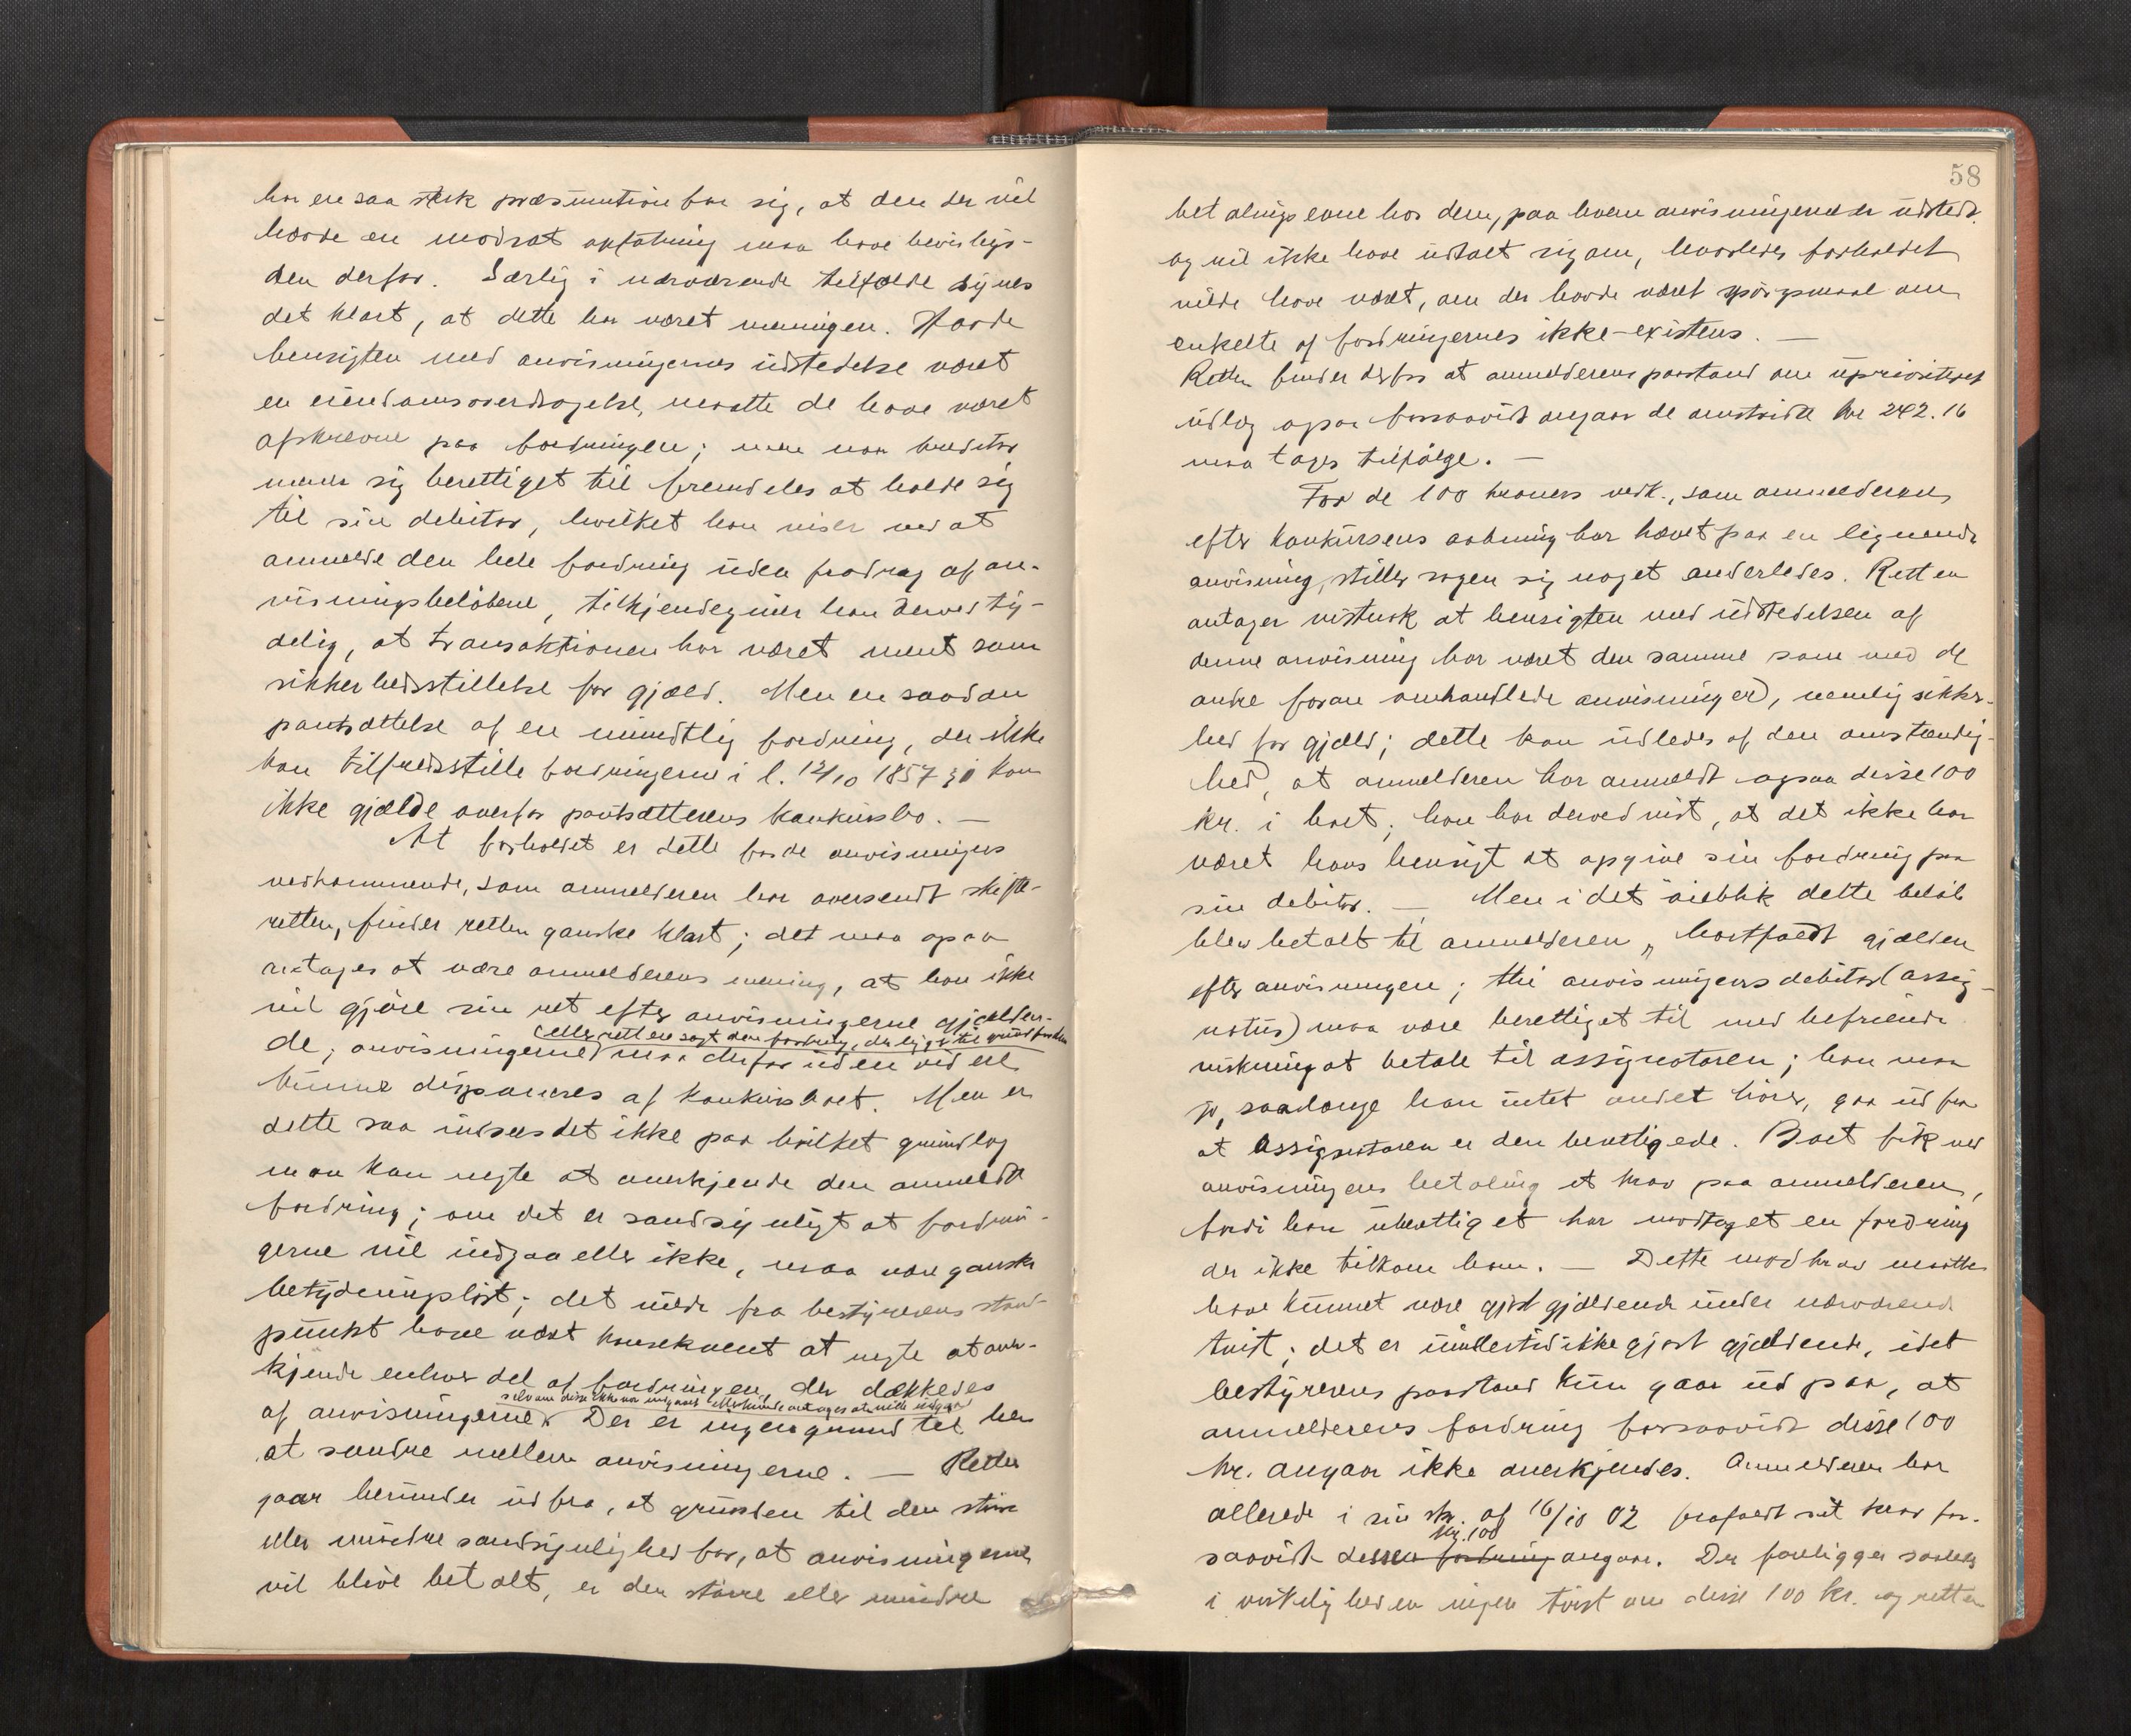 har en saa sterk præsumtion for sig, at den der vil
hævde en modsat opfatning maa have bevisbyr-
den derfor. Særlig i nærværende tilfælde synes
det klart, at dette har været meningen. Havde
hensigten med anvisningernes udstedelse været
en eiendomsoverdragelse, maatte de have været
afskrevne paa fordringen; men naar kreditor
mener sig berettiget til fremdeles at holde sig
til sin debitor, hvilket han viser ved at
anmelde den hele fordring uden fradrag af an-
visningsbeløbene, tilkjendegiver han derved ty-
delig, at transaktionen har været ment som
sikkerhedsstillelse for gjæld. Men en saadan
pantsættelse af en mundtlig fordring, der ikke
kan tilfredsstille fordringerne i l. 12/10 1857 § 1 kan
ikke gjælde overfor pantsætterens konkursbo. —
At forholdet er dette for de anvisningers
vedkommende, som anmelderen har oversendt skifte-
retten, finder retten ganske klart; det maa ogsaa
antages at være anmelderens mening, at han ikke
vil gjøre sin ret efter anvisningerne gjælden-
(eller rettere sagt den fordring, der ligger til grund for dem)
de; anvisningerne maa derfor uden videre
kunne disponeres af konkursboet. Men er
dette saa indsees det ikke paa hvilket grundlag
man kan negte at anerkjende den anmeldte
fordring; om det er sandsynligt at fordrin-
gerne vil indgaa eller ikke, maa være ganske
betydningsløst; det vilde fra bestyrerens stand-
punkt have været konsekvent at negte at aner-
kjende enhver del af fordringen, der dækkedes
selv om disse ikke var indgaaet eller kunde antages at ville indgaa
af anvisningerne. Der er ingen grund til her
at sondre mellem anvisningerne. — Retten
gaar herunder ud fra, at grunden til den større
eller mindre sandsynlighed for, at anvisningerne
vil blive betalt, er den større eller mindre
58
betalingsevne hos dem, paa hvem anvisningerne er udstedt.
og vil ikke have udtalt sig om, hvorledes forholdet
vilde have været, om der havde været spørgsmaal om
enkelte af fordringernes ikke-existens. —
Retten finder derfor at anmelderens paastand om uprioriteret
udlæg ogsaa forsaavidt angaar de omstridte kr 242.16
maa tages tilfølge. —
For de 100 kroners vedk., som anmelderen
efter konkursens aabning har hævet paa en lignende
anvisning, stiller sagen sig noget anderledes. Retten
antager vistnok at hensigten med udstedelsen af
denne anvisning har været den samme som med de
andre foran omhandlede anvisninger, nemlig sikker-
hed for gjæld; dette kan udledes af den omstændig-
hed, at anmelderen har anmeldt ogsaa disse 100
kr. i boet; han har derved vist, at det ikke har
været hans hensigt at opgive sin fordring paa
sin debitor. — Men i det øieblik dette beløb
blev betalt til anmelderen, bortfaldt gjælden
efter anvisningen; thi anvisningens debitor (assig-
natus) maa være berettiget til med befriende
virkning at betale til assignataren; han maa
jo, saalænge han intet andet hører, gaa ud fra
at assignataren er den berettigede. Boet fik ved
anvisningens betaling et krav paa anmelderen,
fordi han uberettiget har modtaget en fordring
der ikke tilkom ham. — Dette modkrav maatte
have kunnet være gjort gjældende under nærværende
tvist; det er imidlertid ikke gjort gjældende, idet
bestyrerens paastand kun gaar ud paa, at
anmelderens fordring forsaavidt disse 100
kr. angaar ikke anerkjendes. Anmelderen har
allerede i sin skr. af 16/10 02 frafaldt sit krav for-
kr. 100
saavidt dessen fordring angaar. Der foreligger saaledes
i virkeligheden ingen tvist om disse 100 kr. og retten